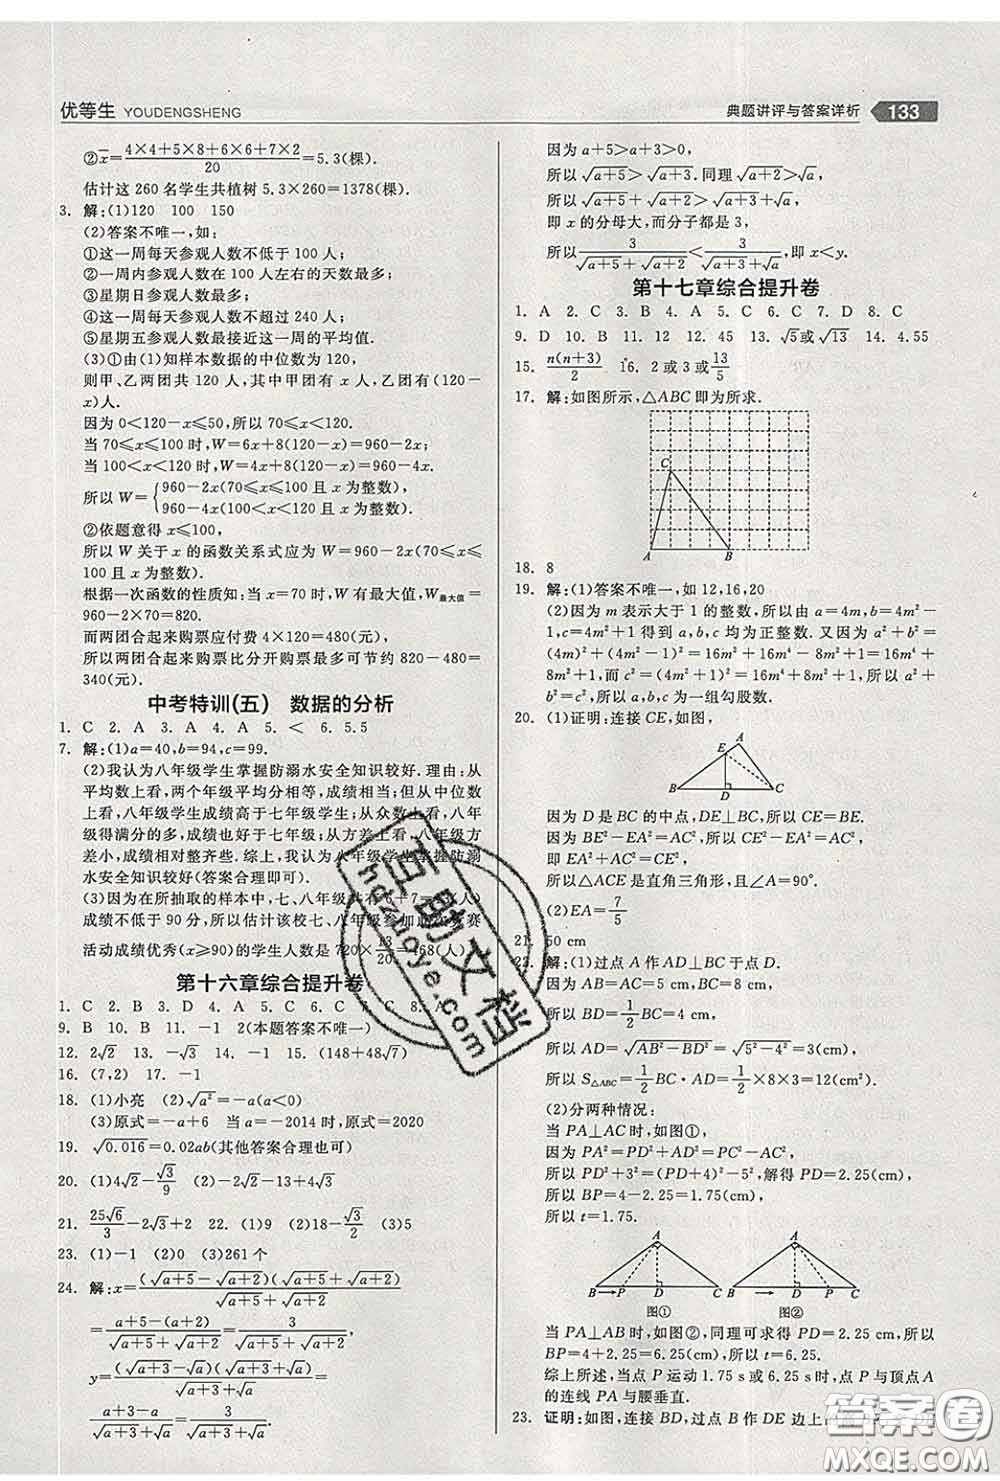 优等生 YOUDENGSHENG
典题讲评与答案详析 133
②x̄=(4×4+5×8+6×6+7×2)/20=5.3(棵).
估计这 260 名学生共植树 5.3×260=1378(棵).
3. 解:(1)120 100 150
(2)答案不唯一,如:
①这一周每天参观人数不低于 100 人;
②一周内参观人数在 100 人左右的天数最多;
③星期日参观人数最多;
④这一周每天参观人数不超过 240 人;
⑤星期五参观人数最接近这一周的平均值.
(3)①由(1)知样本数据的中位数为 120,
则甲、乙两团共 120 人,其中甲团有 x 人,乙团有(120-
x)人.
因为 0<120-x≤50,所以 70≤x<120.
当 70≤x≤100 时,W=6x+8(120-x)=960-2x;
当 100<x<120 时,W=4x+8(120-x)=960-4x.
所以 W={960-2x(70≤x≤100 且 x 为整数),
960-4x(100<x<120 且 x 为整数).
②依题意得 x≤100,
所以 W 关于 x 的函数关系式应为 W=960-2x(70≤x≤
100 且 x 为整数).
根据一次函数的性质知:当 x=70 时,W 有最大值,W最大值=
960-2×70=820.
而两团合起来购票应付费 4×120=480(元),
所以两团合起来购票比分开购票最多可节约 820-480=
340(元).
中考特训(五) 数据的分析
1. C 2. A 3. A 4. A 5. < 6. 5.5
7. 解:(1)a=40,b=94,c=99.
(2)我认为八年级学生掌握防溺水安全知识较好.理由:从
平均数上看,两个年级平均分相等,成绩相当;但从中位数
上看,八年级学生成绩高于七年级学生;从众数上看,八年
级得满分的多,成绩也好于七年级;从方差上看,八年级方
差小,成绩相对整齐些.综上,我认为八年级学生掌握防溺
水安全知识较好(答案合理即可).
(3)因为在所抽取的样本中,七、八年级共有 6+7=13(人)
成绩不低于 90 分,所以估计该校七、八年级参加此次竞赛
活动成绩优秀(x≥90)的学生人数是 720×13/20=468(人).
第十六章综合提升卷
1. C 2. B 3. D 4. A 5. C 6. C 7. C 8. A
9. B 10. B 11. -1 2(本题答案不唯一)
12. 2√2 13. -√3 14. -1 15. (148+48√7)
16. (7,2) 17. -1
18. (1)小亮 (2)√a²=-a(a<0)
(3)原式=-a+6 当 a=-2014 时,原式=2020
19. √0.016=0.02ab(其他答案合理也可)
20. (1)4√2-√3/9 (2)-2√2-13+4√3
21. 25√6/3-2√3+2 22. (1)9 (2)18-√3/2 (3)5
23. (1)-1 (2)0 (3)261 个
24. 解:x=(√(a+5)-√(a+2))(√(a+5)+√(a+2))/(√(a+5)+√(a+2))
=(a+5-(a+2))/(√(a+5)+√(a+2))=3/(√(a+5)+√(a+2)),
y=(√(a+3)-√a)(√(a+3)+√a)/(√(a+3)+√a)
=(a+3-a)/(√(a+3)+√a)=3/(√(a+3)+√a).
因为 a+5>a+3>0,
所以 √(a+5)>√(a+3).同理 √(a+2)>√a,
所以 √(a+5)+√(a+2)>√(a+3)+√a,
即 x 的分母大,而分子都是 3,
所以 3/(√(a+5)+√(a+2))<3/(√(a+3)+√a),即 x<y.
第十七章综合提升卷
1. A 2. C 3. B 4. A 5. C 6. C 7. D 8. C
9. D 10. B 11. 12 12. 45 13. √5或√13 14. 4.55
15. n(n+3)/2 16. 2 或 3 或 13/5
17. 解:如图所示,△ABC 即为所求.
C
A B
18. 8
19. 解:(1)答案不唯一,如 12,16,20
(2)因为 m 表示大于 1 的整数,所以由 a=4m,b=4m²-
1,c=4m²+1 得到 a,b,c 均为正整数.又因为 a²+b²=
(4m)²+(4m²-1)²=16m²+16m⁴-8m²+1=16m⁴+
8m²+1,c²=(4m²+1)²=16m⁴+8m²+1,所以 a²+
b²=c²,所以 a,b,c 为一组勾股数.
20. (1)证明:连接 CE,如图,
A
E
B D C
因为 D 是 BC 的中点,DE⊥BC,所以 CE=BE.
因为 BE²-EA²=AC²,所以 CE²-EA²=AC²,
即 EA²+AC²=CE²,
所以△ACE 是直角三角形,且∠A=90°.
(2)EA=7/5
21. 50 cm
22. 解:(1)过点 A 作 AD⊥BC 于点 D.
因为 AB=AC=5 cm,BC=8 cm,
所以 BD=1/2BC=4 cm,
所以 AD=√(AB²-BD²)=√(5²-4²)=3(cm),
所以 S△ABC=1/2BC·AD=1/2×8×3=12(cm²).
(2)分两种情况:
当 PA⊥AC 时,如图①,
因为 PA²=PD²+AD²=PC²-AC²,
所以 PD²+3²=(PD+4)²-5²,解得 PD=2.25(cm),
所以 BP=4-2.25=1.75(cm),
所以 t=1.75.
A A
B P D C B D P C
图① 图②
当 PA⊥AB 时,如图②,同理可求得 PD=2.25 cm,所以
BP=4+2.25=6.25(cm),所以 t=6.25.
综上所述,当点 P 运动 1.75 s 或 6.25 s 时,点 P 与顶点 A
的连线 PA 与腰垂直.
23. 证明:如图,连接 BD,过点 B 作 DE 边上
百助文档
hdzuoye.com
答案圈
MXQE.COM